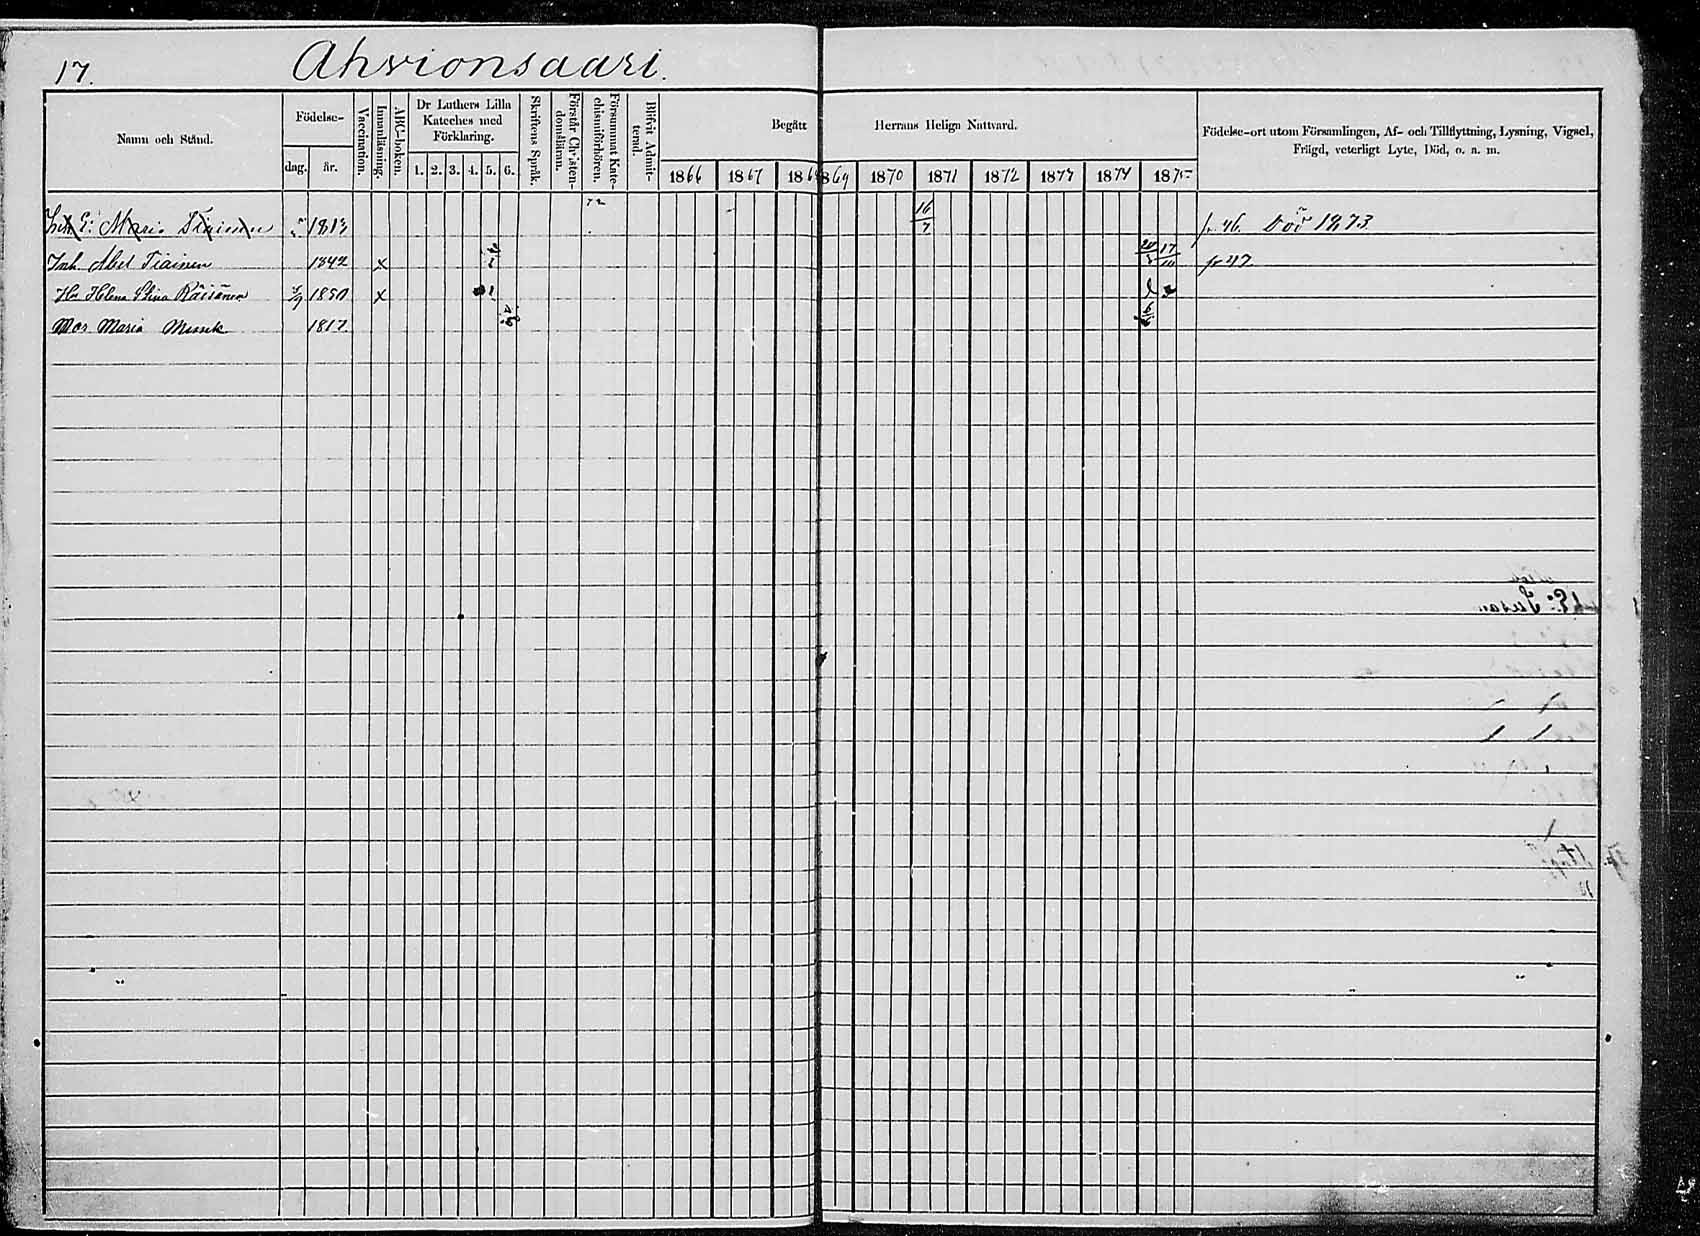 17.
Ahvionsaari.
Namn och Stånd.
Födelse-
dag. år.
Vaccination.
Innanläsning.
ABC-boken.
Dr Luthers Lilla
Kateches med
Förklaring.
1. 2. 3. 4. 5. 6.
Skriftens Språk.
Förstår Christen-
domsläran.
Försummat Kate-
chismiförhören.
Blifvit Admit-
terad.
Begått Herrans Heliga Nattvard.
1866 1867 1868 1869 1870 1871 1872 1873 1874 1875
Födelse-ort utom Församlingen, Af- och Tillflyttning, Lysning, Vigsel,
Frägd, veterligt Lyte, Död, o. a. m.
72
Enk. E: Maria Tiainen 1813 16/7 p 46. Död 1873
Inh. Abel Tiainen 1842 x 17/10 p 47
Hu Helena Stina Räisänen 5/9 1850 x
Mor Maria Munk 1817